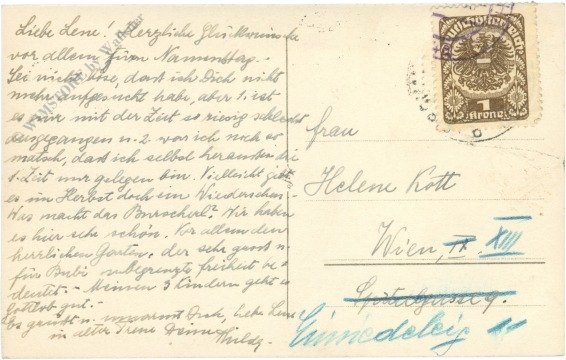 Liebe Lene! Herzliche Glückwünsche
vor allem zum Namenstag.
Sei nicht böse, dass ich Dich nicht
mehr aufgesucht habe, aber 1. ist
es mir mit der Zeit so riesig schlecht
ausgegangen u. 2. war ich noch so
matsch, dass ich selbst herausen die
1. Zeit nur gelegen bin. Vielleicht gibt
es im Herbst doch ein Wiedersehen.
Was macht das Burscherl? Wir haben
es hier sehr schön. Vor allem den
herrlichen Garten, der sehr gross u.
für Bubi unbegrenzte Freiheit be-
deutet. Meinen 3 Kindern geht es
Gottlob gut.
Es grüsst u. umarmt Dich, liebe Lene
in alter Treue Deine
Deutschösterreich
1
Krone
Frau
Helene Kott
Wien, IX. XIII
Spitalgasse 9.